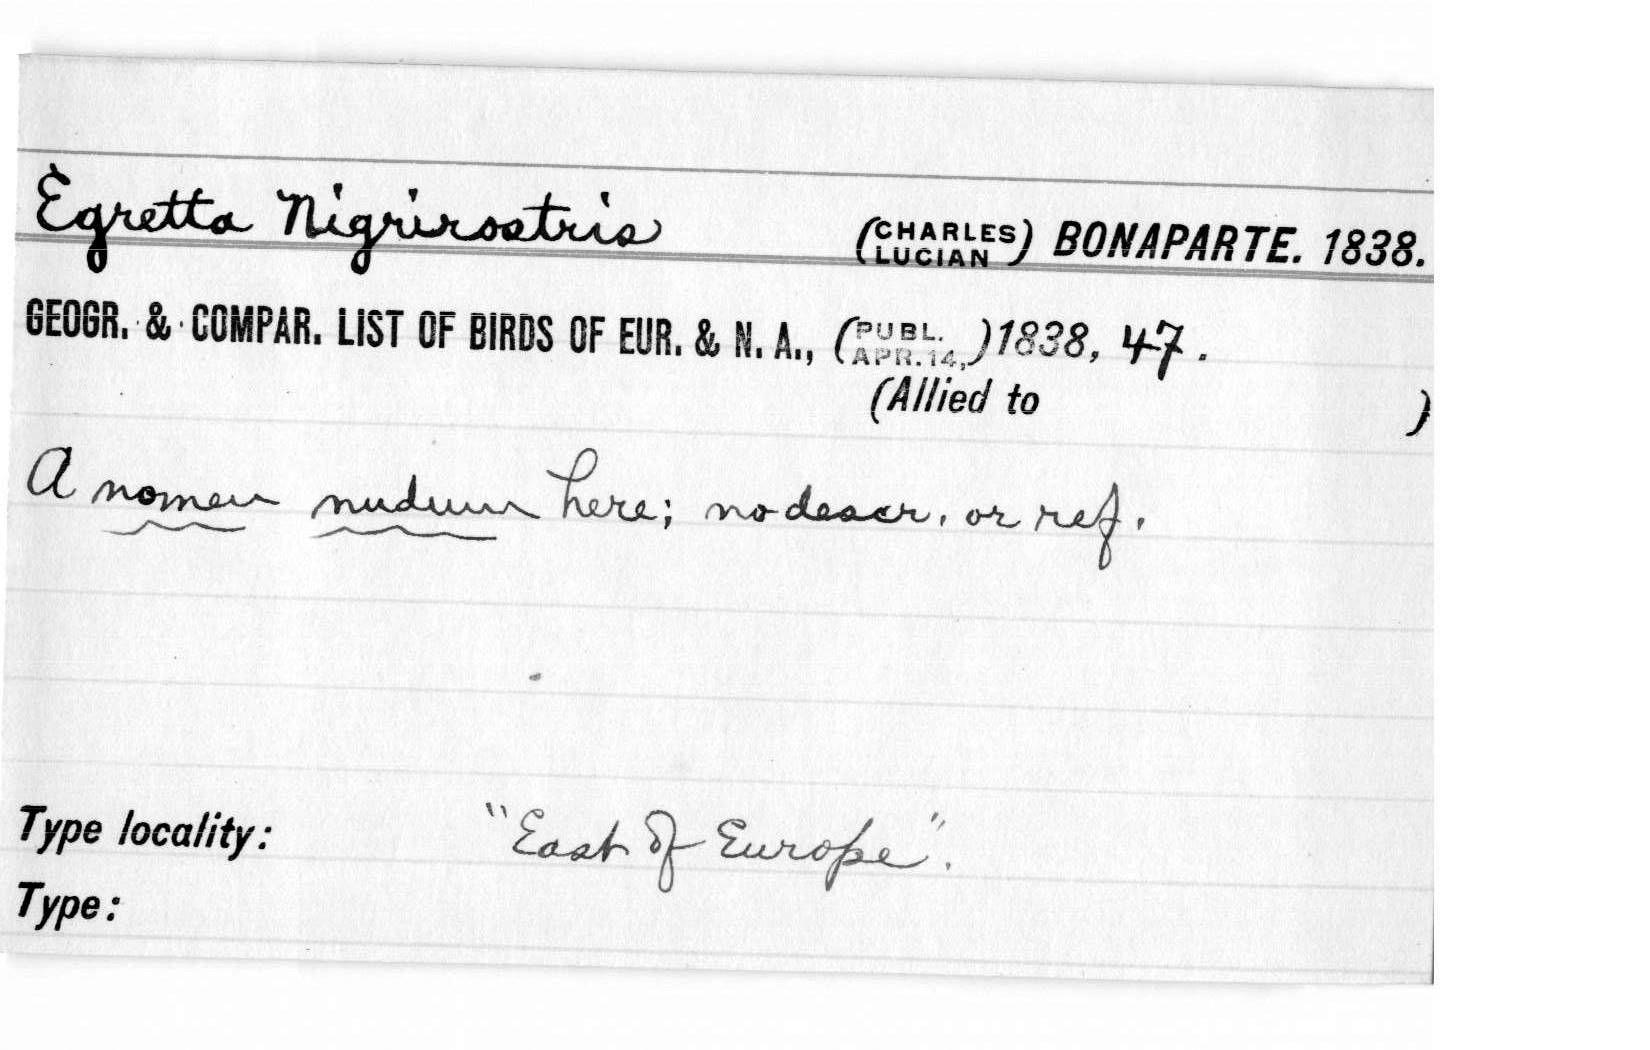 Egretta Nigrirostris (CHARLES LUCIAN) BONAPARTE. 1838.
GEOGR. & COMPAR. LIST OF BIRDS OF EUR. & N. A., (PUBL. APR. 14,) 1838, 47.
(Allied to )
A nomen nudum here; no descr. or ref.
Type locality: "East of Europe".
Type: